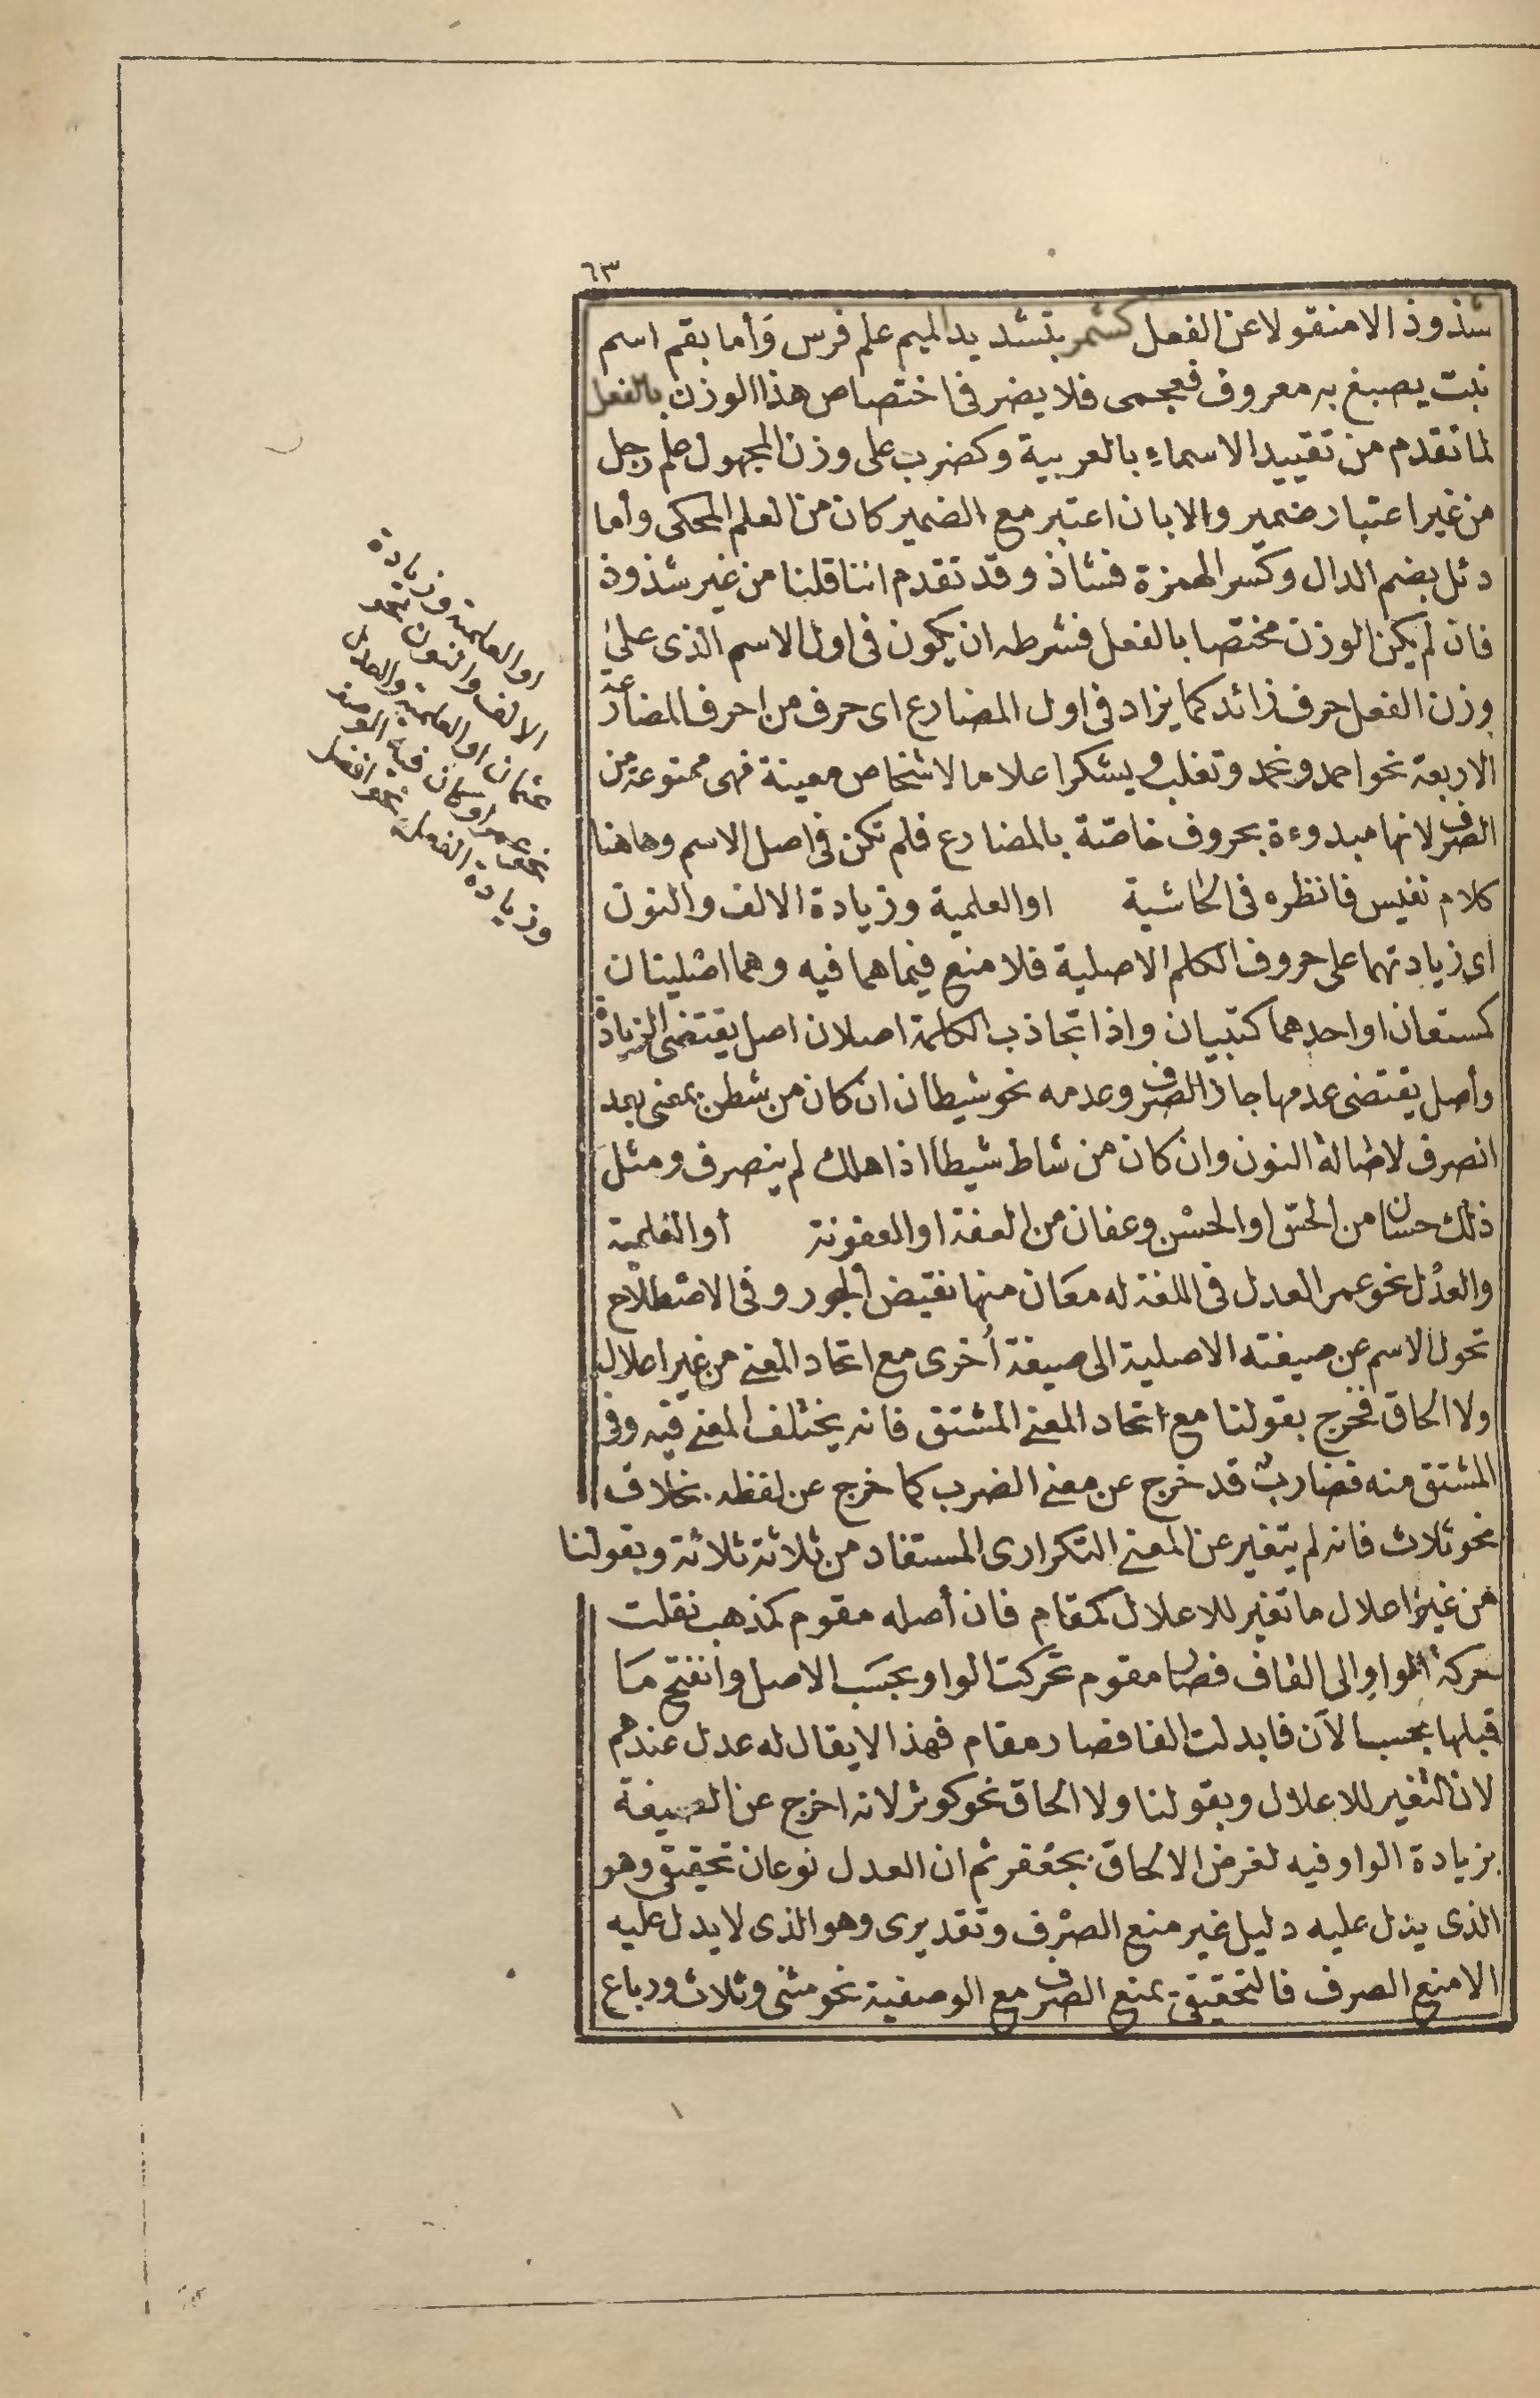 ٦٣
شذوذ الا منقولا عن الفعل كشمر بتشديد الميم علم فرس وَأما بقم اسم
نبت يصبغ به معروف فعجمى فلا يضر فى اختصاص هذا الوزن بالفعل
لما تقدم من تقييد الاسماء بالعربية وكضرب على وزن المجهول علم رجل
من غير اعتبار ضمير والا بان اعتبر مع الضمير كان من العلم المحكى وأما
دئل بضم الدال وكسر الهمزة فشاذ وقد تقدم اننا قلنا من غير شذوذ
فان لم يكن الوزن مختصا بالفعل فشرطه ان يكون فى اول الاسم الذى على
وزن الفعل حرف زائد كما يزاد فى اول المضارع اى حرف من احرف المضارعة
الاربعة نحو احمد ونحمد وتغلب ويشكر اعلاما لاشخاص معينة فهى ممنوعة من
الصرف لانها مبدوءة بحروف خاصّة بالمضارع فلم تكن فى اصل الاسم وهاهنا
كلام نفيس فانظره فى الحاشية او العلمية وزيادة الالف والنون
اى زيادتهما على حروف الكلم الاصلية فلا منع فيما هما فيه وهما اصليتان
كستعان او احدهما كتبيان واذا تجاذب الكلمة اصلان اصل يقتضى الزيادة
وأصل يقتضى عدمها جاز الصرف وعدمه نحو شيطان ان كان من شطن بمعنى بعد
انصرف لاصالة النون وان كان من شاط شيطا اذا هلك لم ينصرف ومثل
ذلك حسان من الحسّ او الحسْن وعفان من العفة او العفونة أو العلمية
والعدْل نحو عمر العدل فى اللغة له معَان منها نقيض الجور وفى الاصْطلاح
تحول الاسم عن صيغته الاصلية الى صيغة أخرى مع اتحاد المعنى من غير اعلال
ولا الحاق فخرج بقولنا مع اتحاد المعنى المشتق فانه يختلف المعنى فيه وفى
المشتق منه فضارب قد خرج عن معنى الضرب كما خرج عن لفظه بخلاف
نحو ثلاث فانه لم يتغير عن المعنى التكرارى المستفاد من ثلاثة ثلاثة وبقولنا
من غير اعلال ما تغير للاعلال كمقام فان أصله مقوم كمذهب نقلت
حركة الواو الى القاف فصار مقوم تحركت الواو بحسَب الاصل وانفتح مَا
قبلها بحسب الآن فابدلت الفا فصار مقام فهذا لا يقال له عدل عندهم
لان التغير للاعلال وبقولنا ولا الحاق نحو كوثر لانه اخرج عن الصيغة
بزيادة الواو فيه لغرض الالحاق بجعفر ثم ان العدل نوعان تحقيقى وهو
الذى يدل عليه دليل غير منع الصرْف وتقديرى وهو الذى لا يدل عليه
الا منع الصرف فالتحقيقى يمنع الصرف مع الوصفية نحو مثنى وثلاث ورباع
او العلمية وزيادة
الالف والنون نحو
عثمان او العلمية والعدل
نحو عمر او كان فيه الوصف
وزيادة الفعل نحو افضل